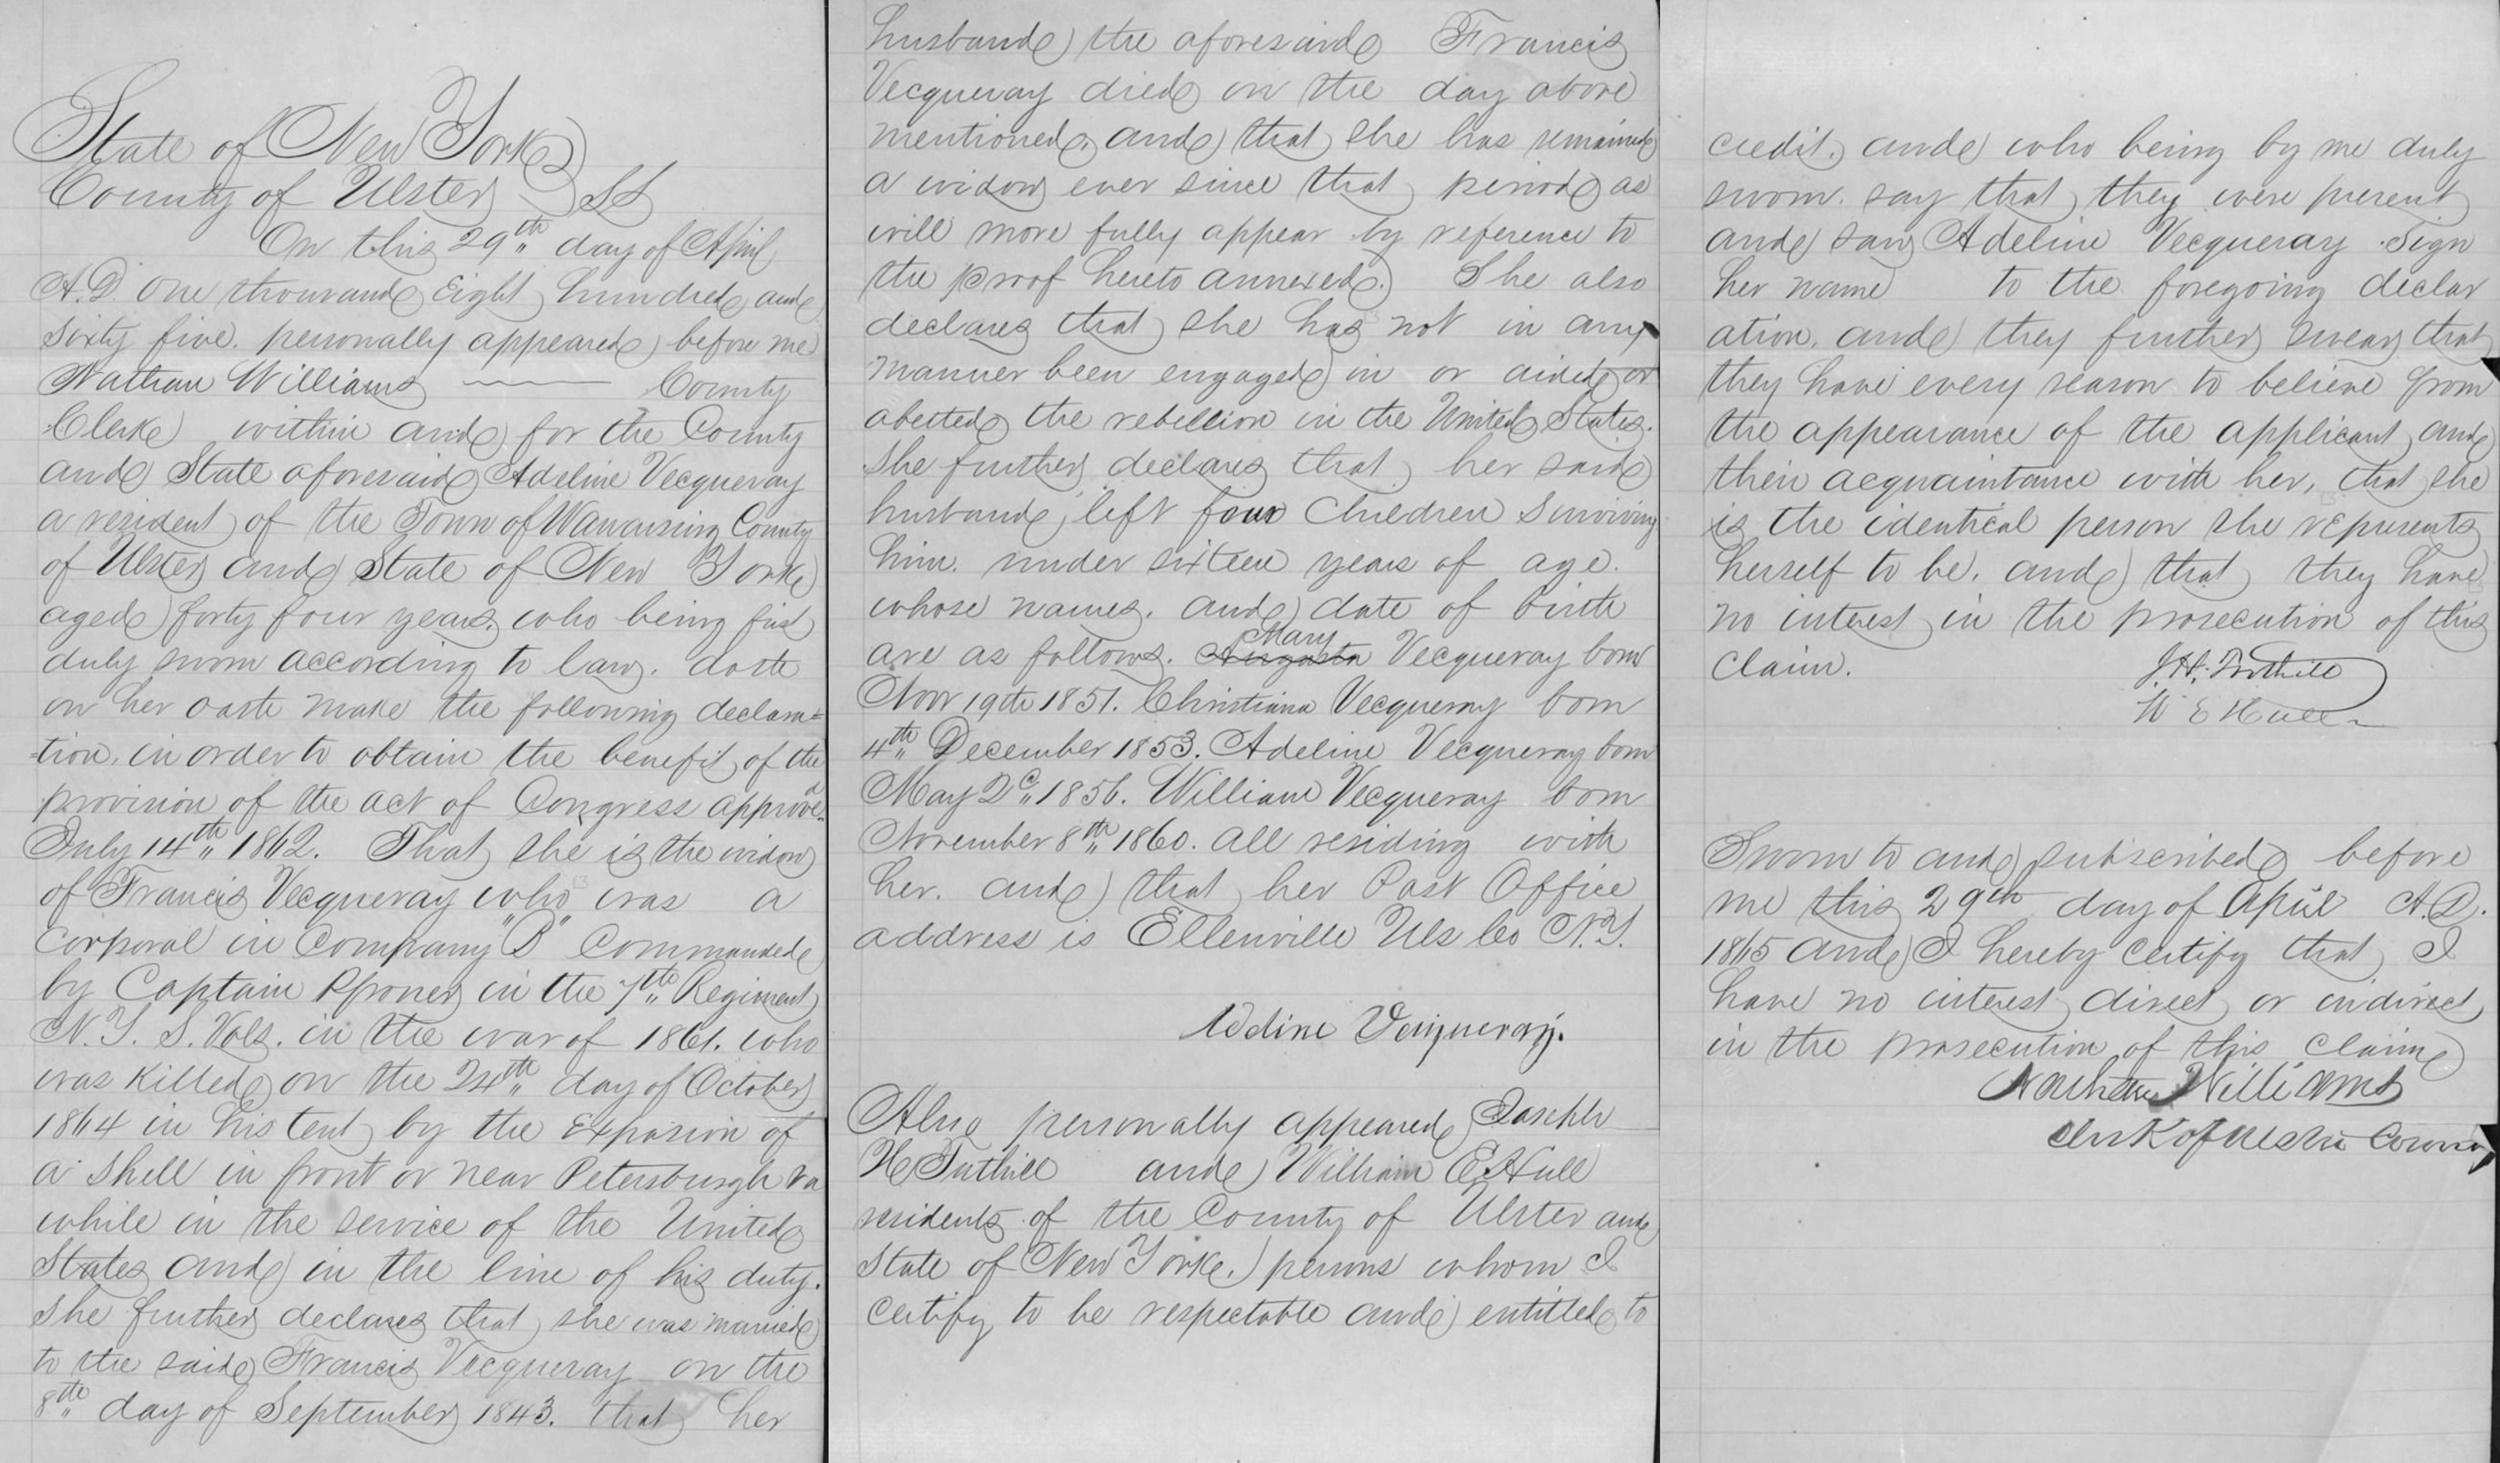 State of New York
County of Ulster } SS
On this 29th day of April
A.D. One thousand Eight hundred and
sixty five. personally appeared before me
Nathan Williams County
Clerk within and for the County
and State aforesaid Adeline Vecqueray
a resident of the Town of Wawarsing County
of Ulster and State of New York
aged forty four years, who being first
duly sworn according to law. doth
on her oath make the following declara=
=tion, in order to obtain the benefit of the
provision of the act of Congress approved
July 14th 1862. That she is the widow
of Francis Vecqueray who was a
Corporal in Company "B" Commanded
by Captain in the 7th Regiment
N.Y. S. Vols. in the war of 1861. who
was killed on the 24th day of October
1864 in his tent by the Exposion of
a shell in front or near Petersburgh Va
while in the service of the United
States and in the line of his duty.
She further declares that she was married
to the said Francis Vecqueray on the
8th day of September 1843. that her
husband the aforesaid Francis
Vecqueray died on the day above
mentioned, and that she has remained
a widow ever since that period as
will more fully appear by reference to
the proof hereto annexed. She also
declares that she has not in any
manner been engaged in or aided or
abetted the rebellion in the United States.
She further declares that her said
husband, left four Children Surviving
him. under sixteen years of age.
whose names. and date of birth
Mary
are as follows. Augusta Vecqueray born
Nov 19th 1851. Christiana Vecqueray born
4th December 1853. Adeline Vecqueray born
May 2d 1856. William Vecqueray born
November 8th 1860. all residing with
her. and that her Post Office
address is Ellenville Uls Co N.Y.
Adeline Vecqueray.
Also personally appeared Joseph
H Tuthill and William E Hull
residents of the County of Ulster and
State of New York. persons whom I
certify to be respectable and entitled to
credit, and who being by me duly
sworn. say that they were present
and saw Adeline Vecqueray Sign
her name to the foregoing declar
ation, and they further swear that
they have every reason to believe from
the appearance of the applicant and
their acquaintance with her, that she
is the identical person she represents
herself to be, and that they have
no interest in the prosecution of this
claim.
J.H. Tuthill
W E Hull
Sworn to and subscribed before
me this 29th day of April A.D.
1865 and I hereby certify that I
have no interest direct or indirect
in the prosecution of this claim
Nathan Williams
Clerk of Ulster County